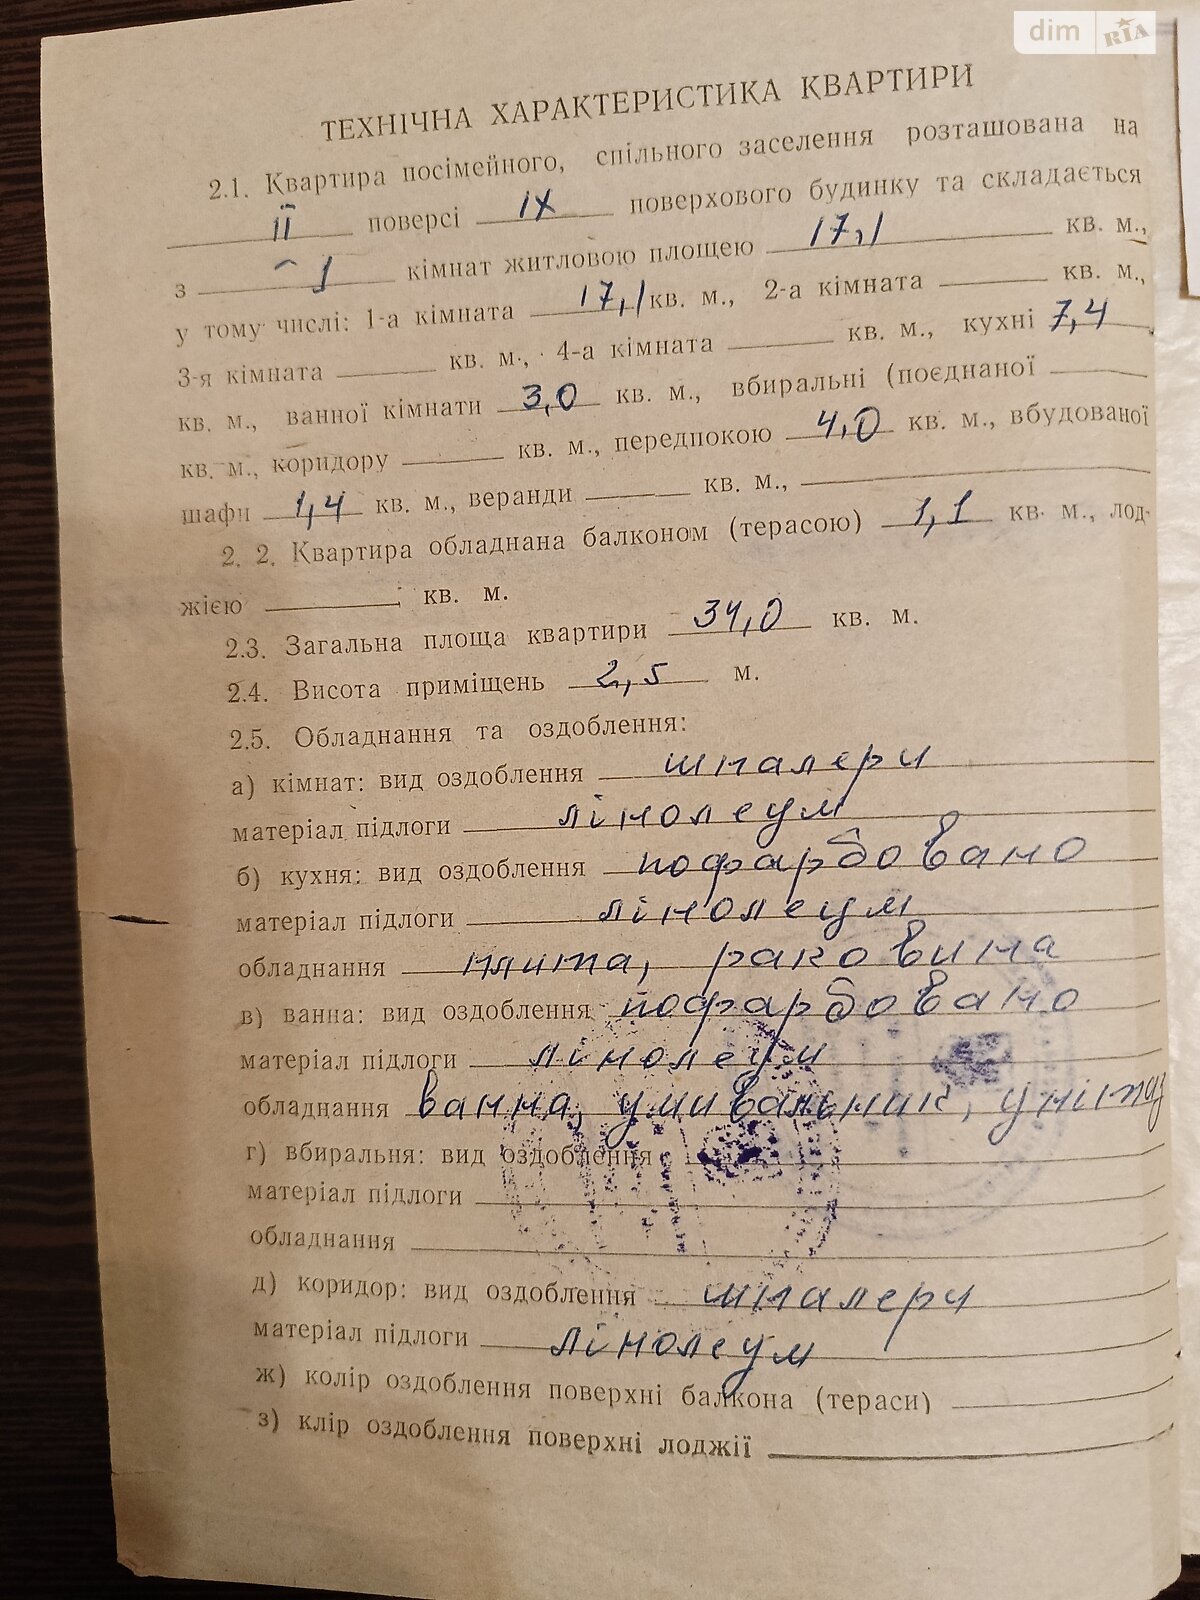 dim RIA
ТЕХНІЧНА ХАРАКТЕРИСТИКА КВАРТИРИ
2.1. Квартира посімейного, спільного заселення розташована на
II поверсі IX поверхового будинку та складається
з 1 кімнат житловою площею 17,1 кв. м.,
у тому числі: 1-а кімната 17,1 кв. м., 2-а кімната кв. м.,
3-я кімната кв. м., 4-а кімната кв. м., кухні 7,4
кв. м., ванної кімнати 3,0 кв. м., вбиральні (поєднаної
кв. м., коридору кв. м., передпокою 4,0 кв. м., вбудованої
шафи 1,4 кв. м., веранди кв. м.,
2. 2. Квартира обладнана балконом (терасою) 1,1 кв. м., лод-
жією кв. м.
2.3. Загальна площа квартири 34,0 кв. м.
2.4. Висота приміщень 2,5 м.
2.5. Обладнання та оздоблення:
а) кімнат: вид оздоблення шпалери
матеріал підлоги лінолеум
б) кухня: вид оздоблення пофарбовано
матеріал підлоги лінолеум
обладнання плита, раковина
в) ванна: вид оздоблення пофарбовано
матеріал підлоги лінолеум
обладнання ванна, умивальник, унітаз
г) вбиральня: вид оздоблення
матеріал підлоги
обладнання
д) коридор: вид оздоблення шпалери
матеріал підлоги лінолеум
ж) колір оздоблення поверхні балкона (тераси)
з) клір оздоблення поверхні лоджії